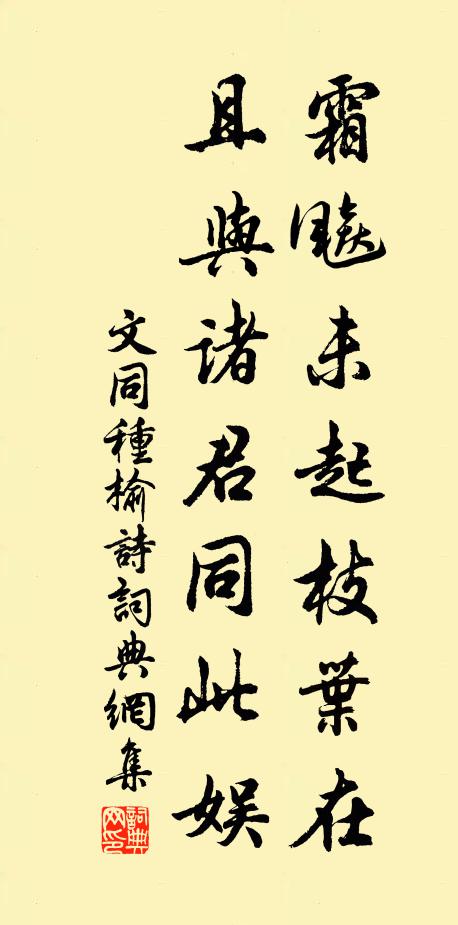 霜飈未起枝葉在
且與諸君同此娱
文同種榆詩詞典網集
詞典
网印